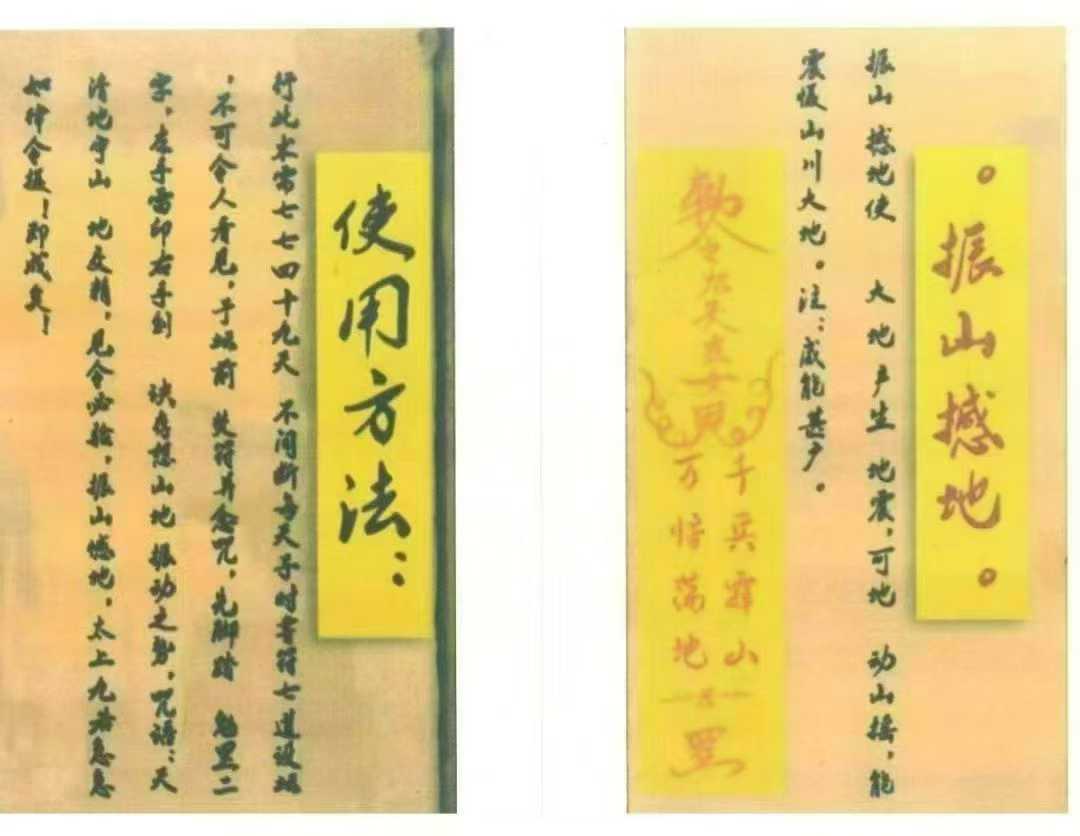 。振山撼地。
振山 撼地使 大地产生 地震,可地 动山摇,能
山川大地。注:威能甚广。
勅令九天玄女
千兵霹山
万荡地
罡
使用方法:
行此术需七七四十九天 不间断每天子时书符七道设坛
,不可令人看见,于坛前 焚符并念咒,先脚踏 魁罡二
字,左手雷印右手剑 诀存想山地 振动之势,咒语:天
清地宁山 地精,见令必验,振山憾地,太上九君急急
如律令摄!即成矣!